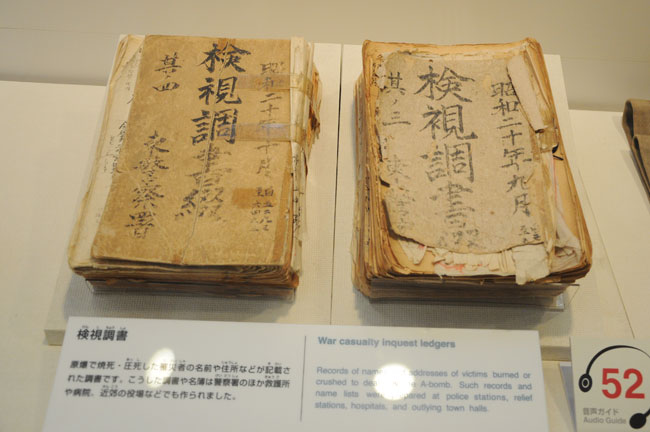 昭和二十年十月
検視調書綴
其ノ四
東警察署
昭和二十年九月
検視調書綴
其ノ三
検視調書
原爆で焼死・圧死した被災者の名前や住所などが記載さ
れた調書です。こうした調書や名簿は警察署のほか救護所
や病院、近郊の役場などでも作られました。
War casualty inquest ledgers
Records of names addresses of victims burned or
crushed to de A-bomb. Such records and
name lists were ared at police stations, relief
stations, hospitals, and outlying town halls.
52
音声ガイド
Audio Guide